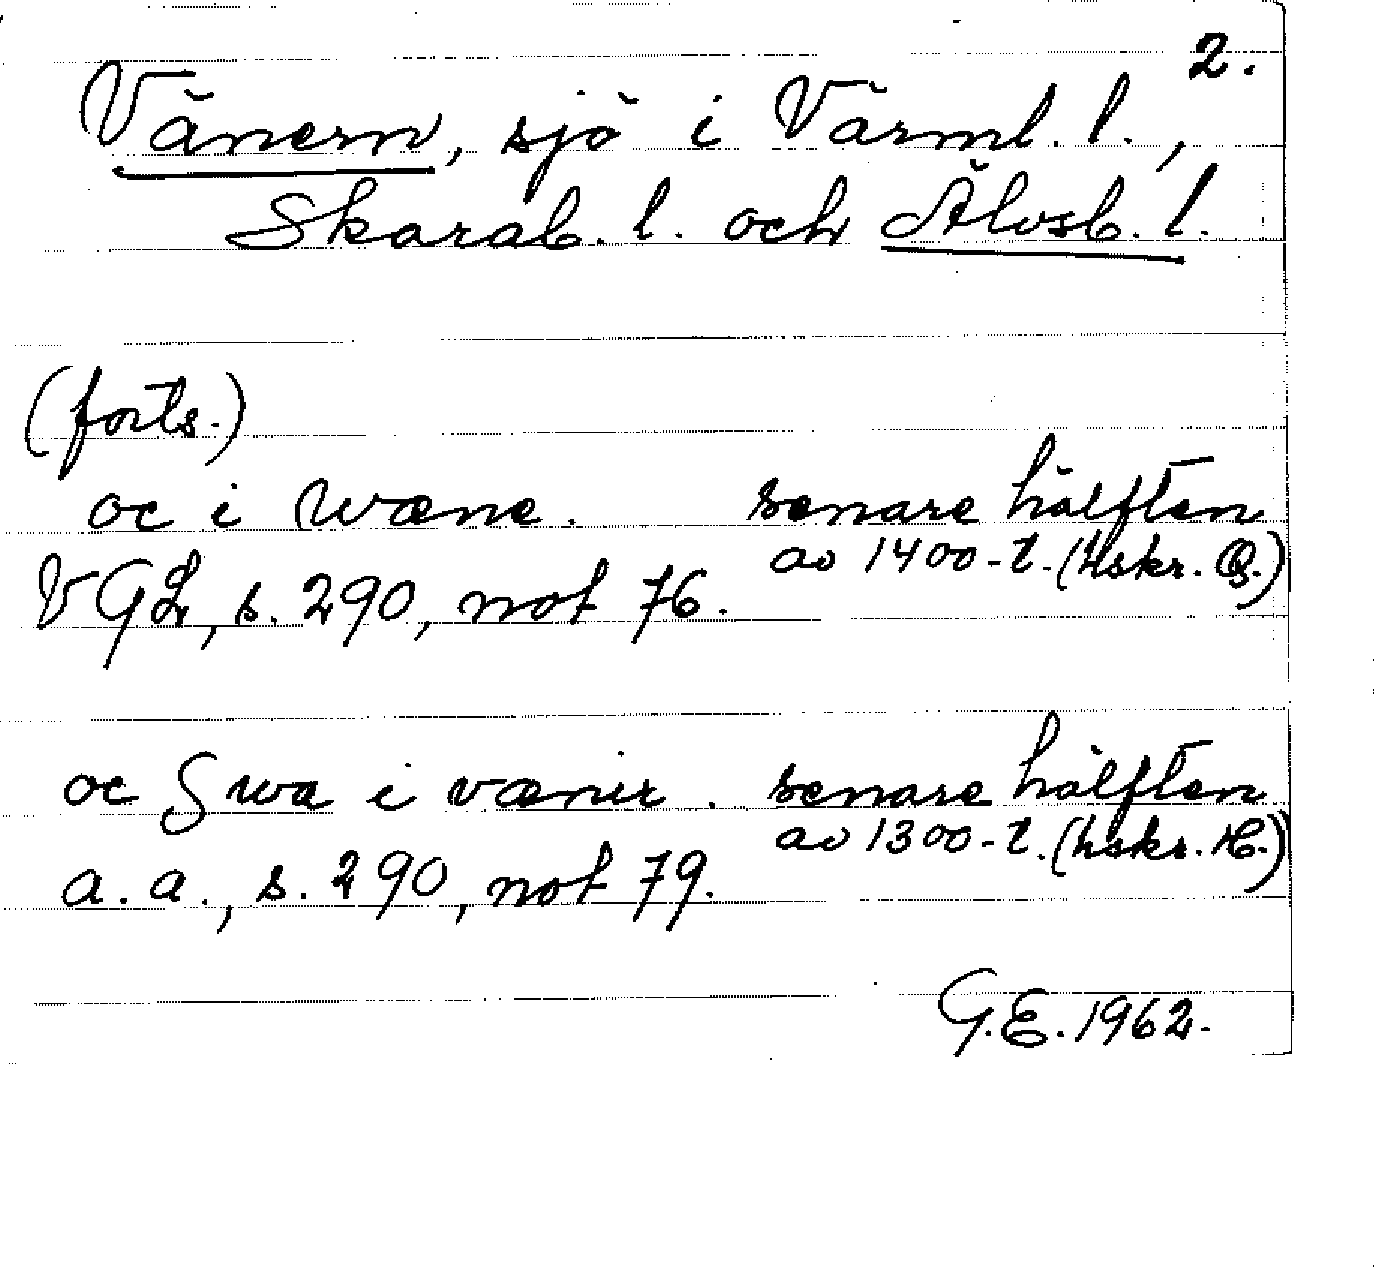 2.
Vänern, sjö i Värml. l.,
Skarab. l. och Älvsb. l.
(forts.)
oc i wæne. senare hälften
av 1400-t. (hskr. B.)
VGL, s. 290, not 76.
oc Swa i vænir. senare hälften
av 1300-t. (hskr. H.)
a. a., s. 290, not 79.
G.E. 1962.